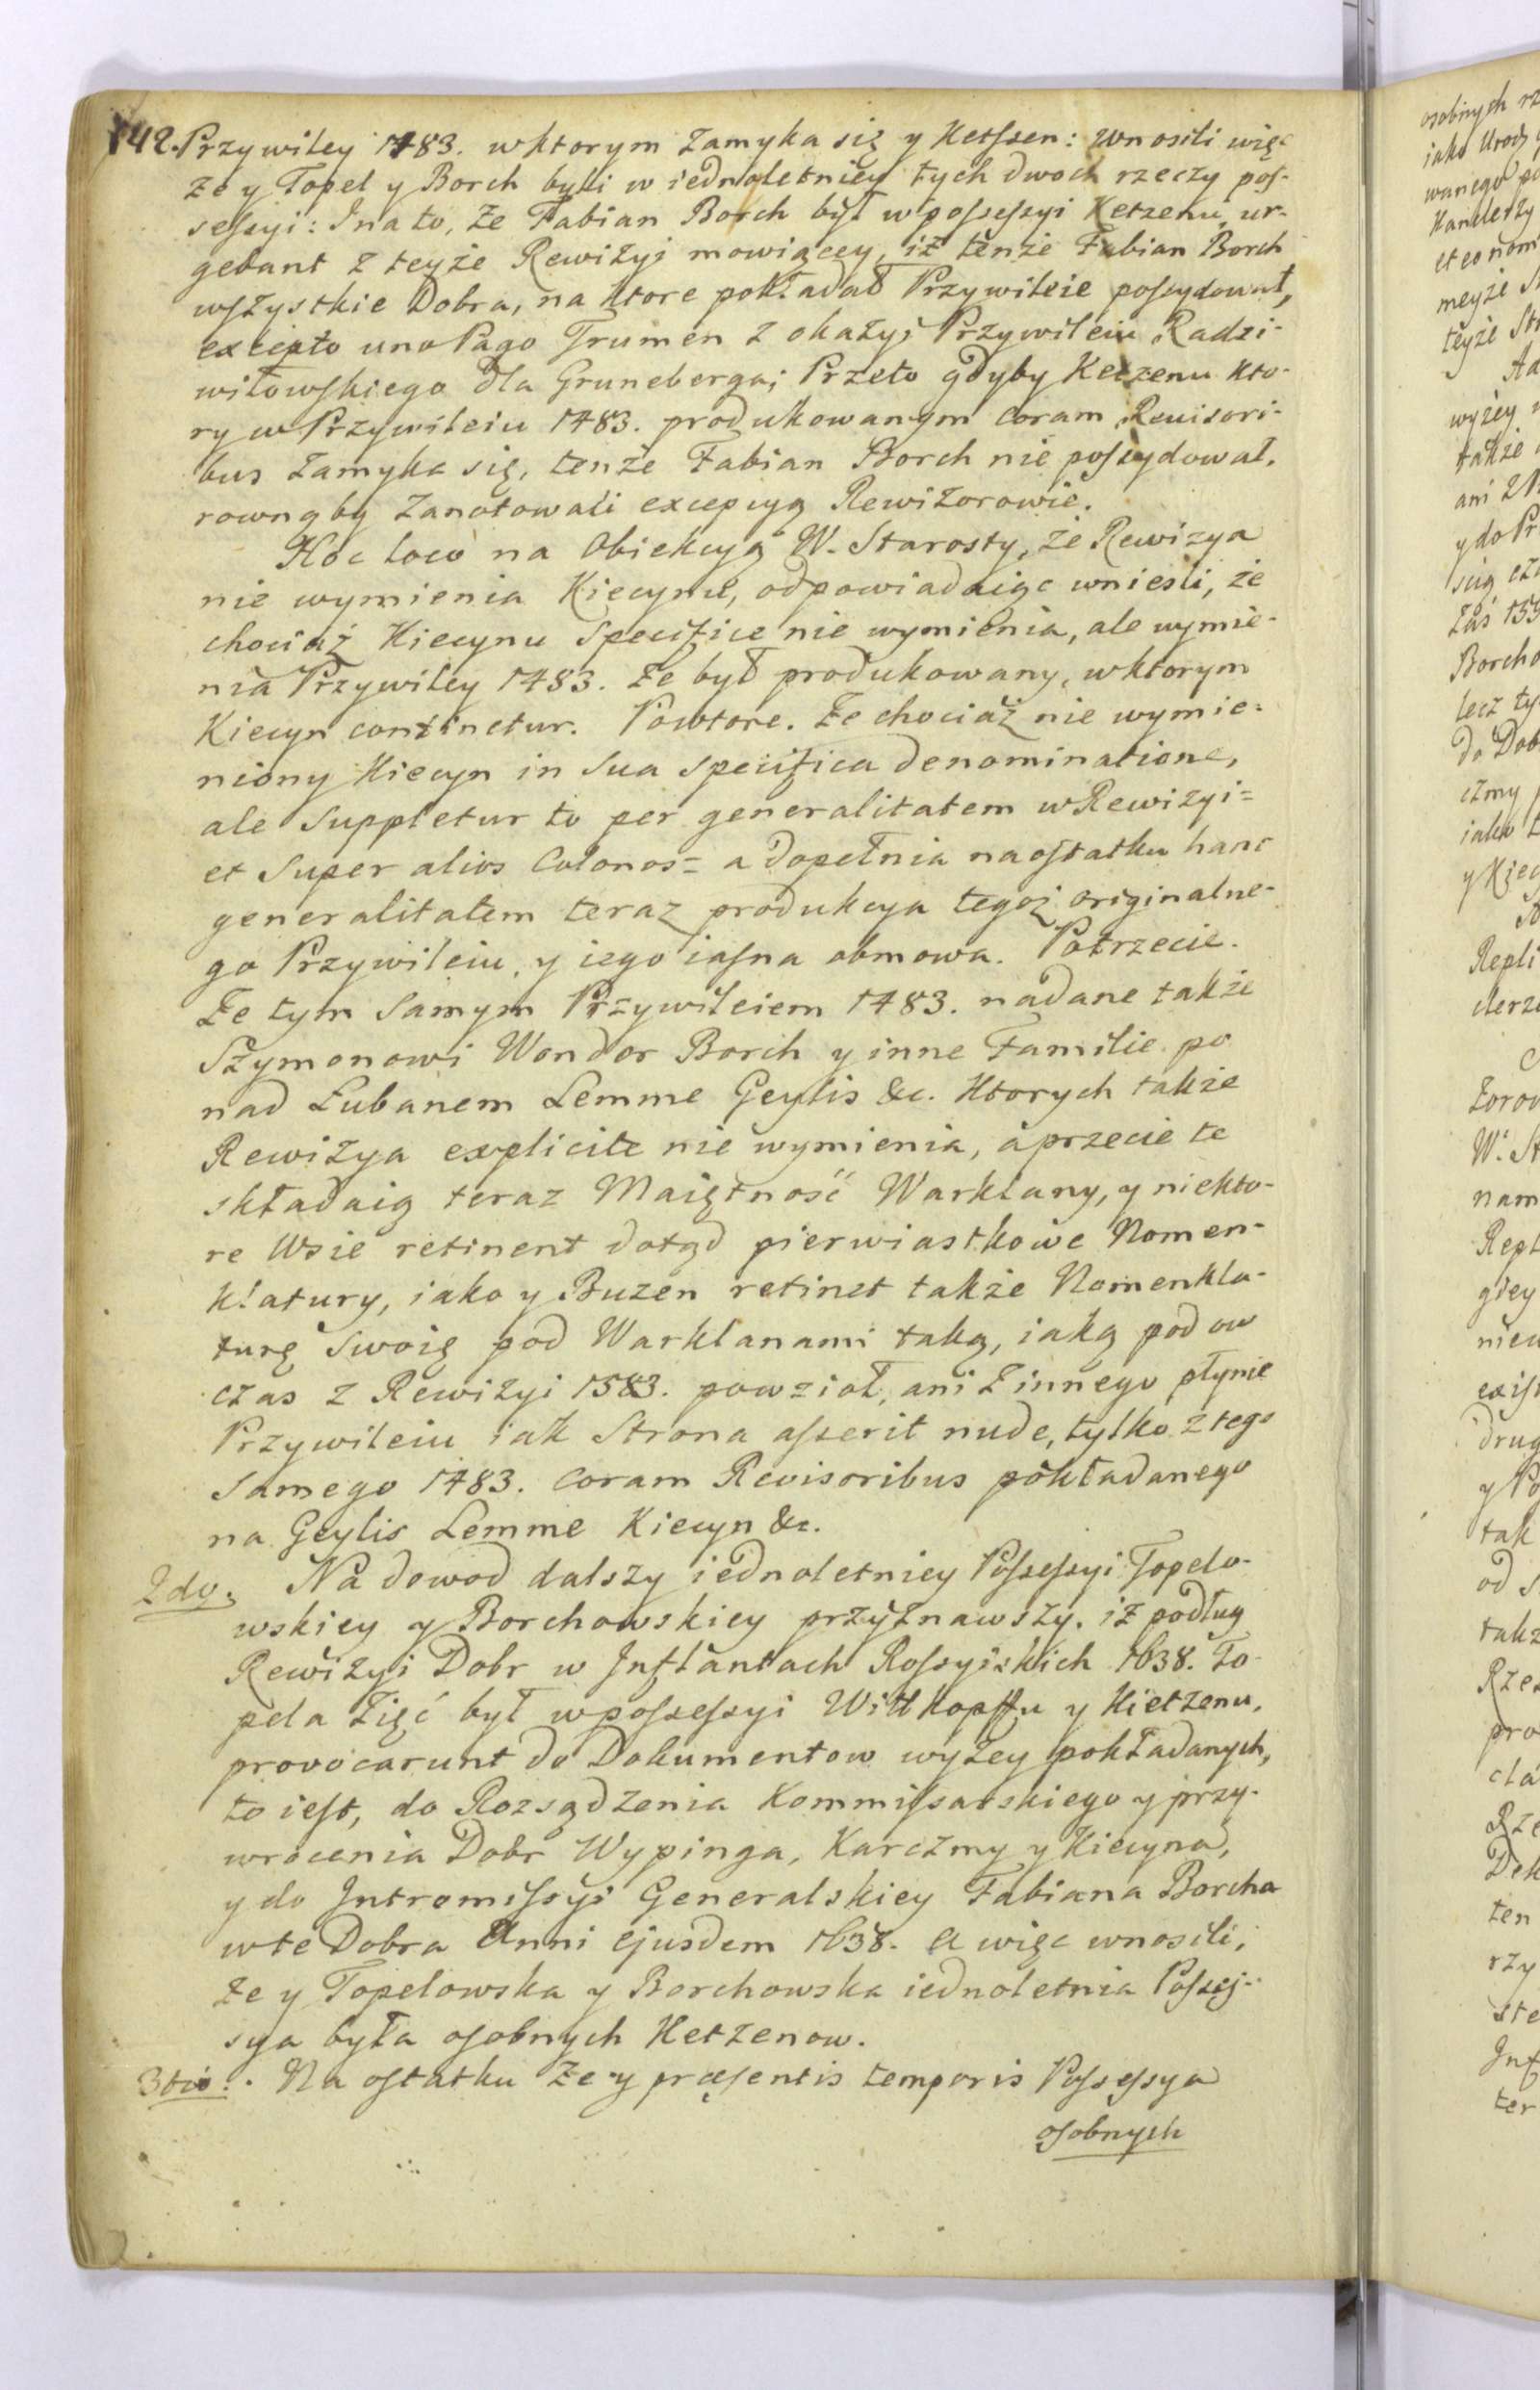 142. Przywiley 1483. w ktorym zamyka się y Ketssen: wnosili więc
że y Topel y Borch byli w iednoletniey tych dwoch rzeczy pos-
sessyi: I na to, że Fabian Borch był w possessyi Ketzenu, ur-
gebant z teyże Rewizyi mowiącey, iż tenże Fabian Borch
wszystkie Dobra, na ktore pokładał Przywileie possydował,
excepto uno Pago Trumen z okazyi Przywileiu Radzi-
wiłowskiego dla Gruneberga; Przeto gdyby Ketzenu kto-
ry w Przywileiu 1483. produkowanym coram Revisori-
bus zamyka się, tenże Fabian Borch nie possydował,
rowną by zanotowali excepcyą Rewizorowie.
Hoc loco na Obiekcyą W. Starosty, że Rewizya
nie wymienia Kiecynu, odpowiadaiąc wnieśli, że
chociaż Kiecynu specifice nie wymienia, ale wymie-
nia Przywiley 1483. że był produkowany, w ktorym
Kiecyn continetur. Powtore. Że chociaż nie wymie-
niony Kiecyn in sua specifica denominatione,
ale suppletur to per generalitatem w Rewizyi=
et super alios Colonos= a dopełnia na ostatku hanc
generalitatem teraz produkcya tegoż originalne-
go Przywileiu, y iego iasna obmowa. Potrzecie.
Że tym samym Przywileiem 1483. nadane także
Szymonowi Wondor Borch y inne Familie po
nad Łubanem Lemme Geylis &c. Ktorych także
Rewizya explicite nie wymienia, a przecie te
składaią teraz Maiętność Warklany, y niekto-
re Wsie retinent dotąd pierwiastkowe Nomen-
klatury, iako y Buzen retinet także Nomenkla-
turę swoię pod Warklanami taką, iaką pod ow
czas z Rewizyi 1583. powziął, ani z innego płynie
Przywileiu iak Strona asserit nude, tylko z tego
samego 1483. coram Revisoribus pokładanego
na Geylis Lemme Kiecyn &c.
2do. Na dowod dalszy iednoletniey Possessyi Topelo-
wskiey y Borchowskiey przyznawszy, iż podług
Rewizyi Dobr w Inflantach Rossyiskich 1638. To-
pela Zięć był w possessyi Witkopffu y Kietzenu,
provocarunt do Dokumentow wyżey pokładanych,
to iest, do Rozsądzenia Kommissarskiego y przy-
wrocenia Dobr Wypinga, Karczmy y Kiecyna,
y do Intromissyi Generalskiey Fabiana Borcha
w te Dobra Anni ejusdem 1638. A więc wnosili,
że y Topelowska y Borchowska iednoletnia Posses-
sya była osobnych Ketzenow.
3tio. Na ostatku że y præsentis temporis Possessya
osobnych